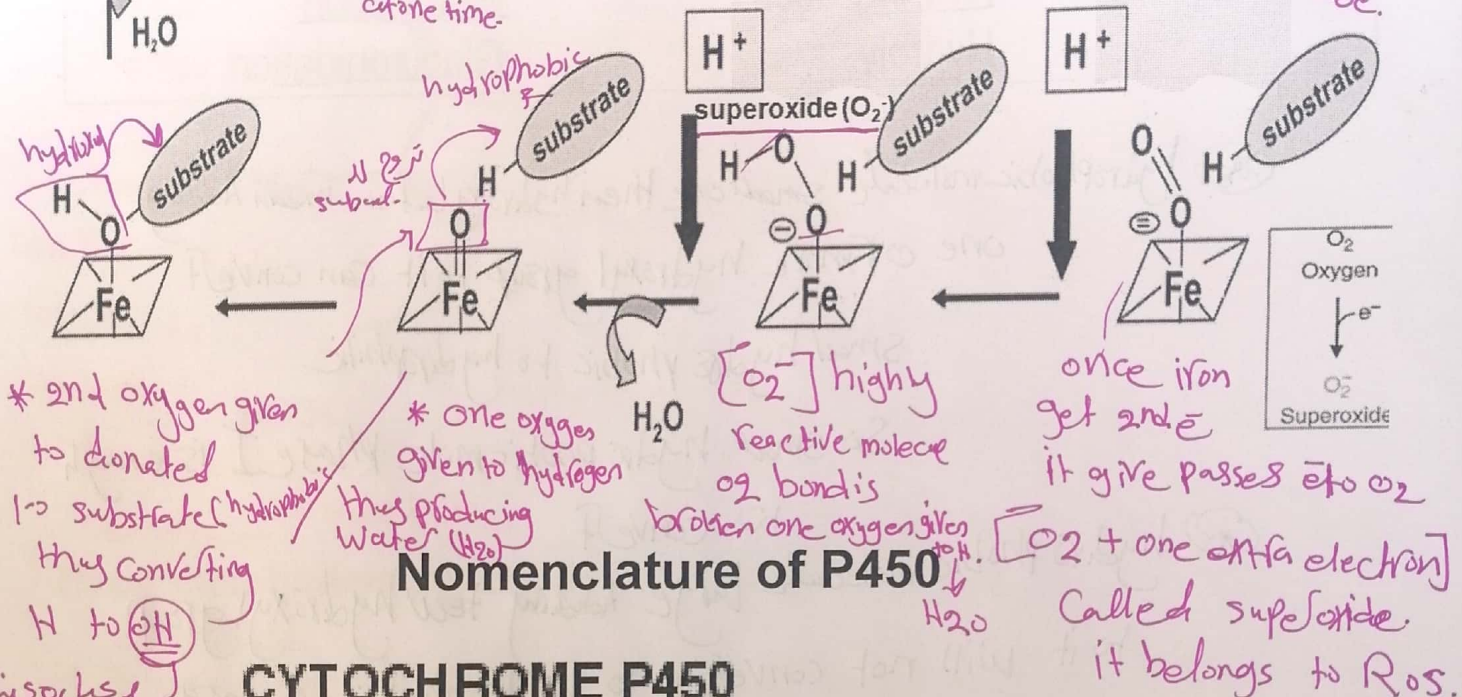 H₂O
at one time.
hydrophobic
H⁺
H⁺
superoxide (O₂⁻)
hydroxyl
substrate
substrate
substrate
substrate
H
O
H
O
H
O
H
O
O
H
O
Fe
Fe
Fe
Fe
O₂
Oxygen
e⁻
O₂⁻
Superoxide
H₂O
* 2nd oxygen given
to donated
substrate (hydrophobic
thus converting
H to OH
* One oxyges
given to hydrogen
thus producing
Water (H₂O)
[O₂⁻] highly
reactive molece
o2 bond is
broken one oxygen given
to H.
H2O
once iron
get 2nd ē
it give passes ē to O2
[O2 + one extra electron]
Called superoxide.
it belongs to ROS.
Nomenclature of P450
CYTOCHROME P450